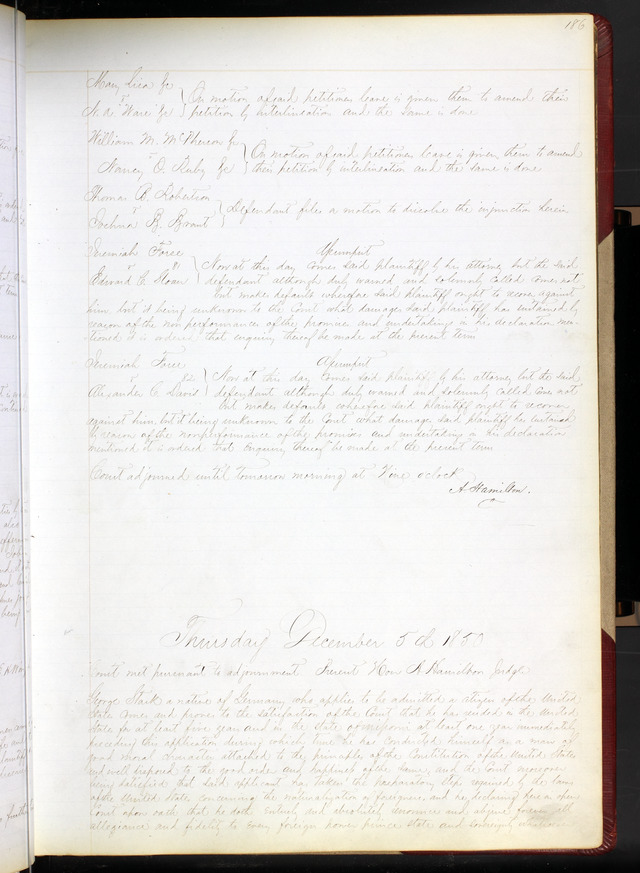 186
Mary Lisa &c
vs
N. A. Ware &c } On motion of said petitioners leave is given them to amend their
petition by interlineation and the same is done
William M. McPherson &c
vs
Nancy O. Ruby &c } On motion of said petitioners leave is given them to amend
their petition by interlineation and the same is done
Thomas B. Robertson
vs
Joshua B. Brant } Defendant files a motion to dissolve the injunction herein
Jeremiah Force Assumpsit
vs 81
Edward C. Sloan } Now at this day comes said plaintiff by his attorney but the said
defendant although duly warned and solemnly called comes not
but makes default wherefore said plaintiff ought to recover against
him, but it being unknown to the Court what damage said plaintiff has sustained by
reason of the non performance of the promises and undertakings in his declaration men-
tioned it is ordered that enquiry thereof be made at the present term
Jeremiah Force Assumpsit
vs 82
Alexander C. Davis } Now at this day comes said plaintiff by his attorney but the said
defendant although duly warned and solemnly called comes not
but makes default wherefore said plaintiff ought to recover
against him, but it being unknown to the Court what damage said plaintiff has sustained
by reason of the nonperformance of the promises and undertakings in his declaration
mentioned it is ordered that enquiry thereof be made at the present term
Court adjourned until tomorrow morning at Nine oclock
A. Hamilton.
Thursday December 5th 1850
Court met pursuant to adjournment Present Hon A Hamilton Judge
George Stark a native of Germany who applies to be admitted a citizen of the United
States comes and proves to the satisfaction of the Court that he has resided in the United
States for at least five years and in the state of Missouri at least one year immediately
preceding this application during which time he has conducted himself as a man of
good moral character attached to the principles of the Constitution of the United States
and well disposed to the good order and happiness of the same, and the Court moreover
being satisfied that said applicant has taken the preparatory steps required by the laws
of the United States concerning the naturalization of foreigners, and he declaring here in open
Court upon oath that he doth entirely and absolutely renounce and abjure forever all
allegiance and fidelity to every foreign power prince state and sovereignty whatsoever